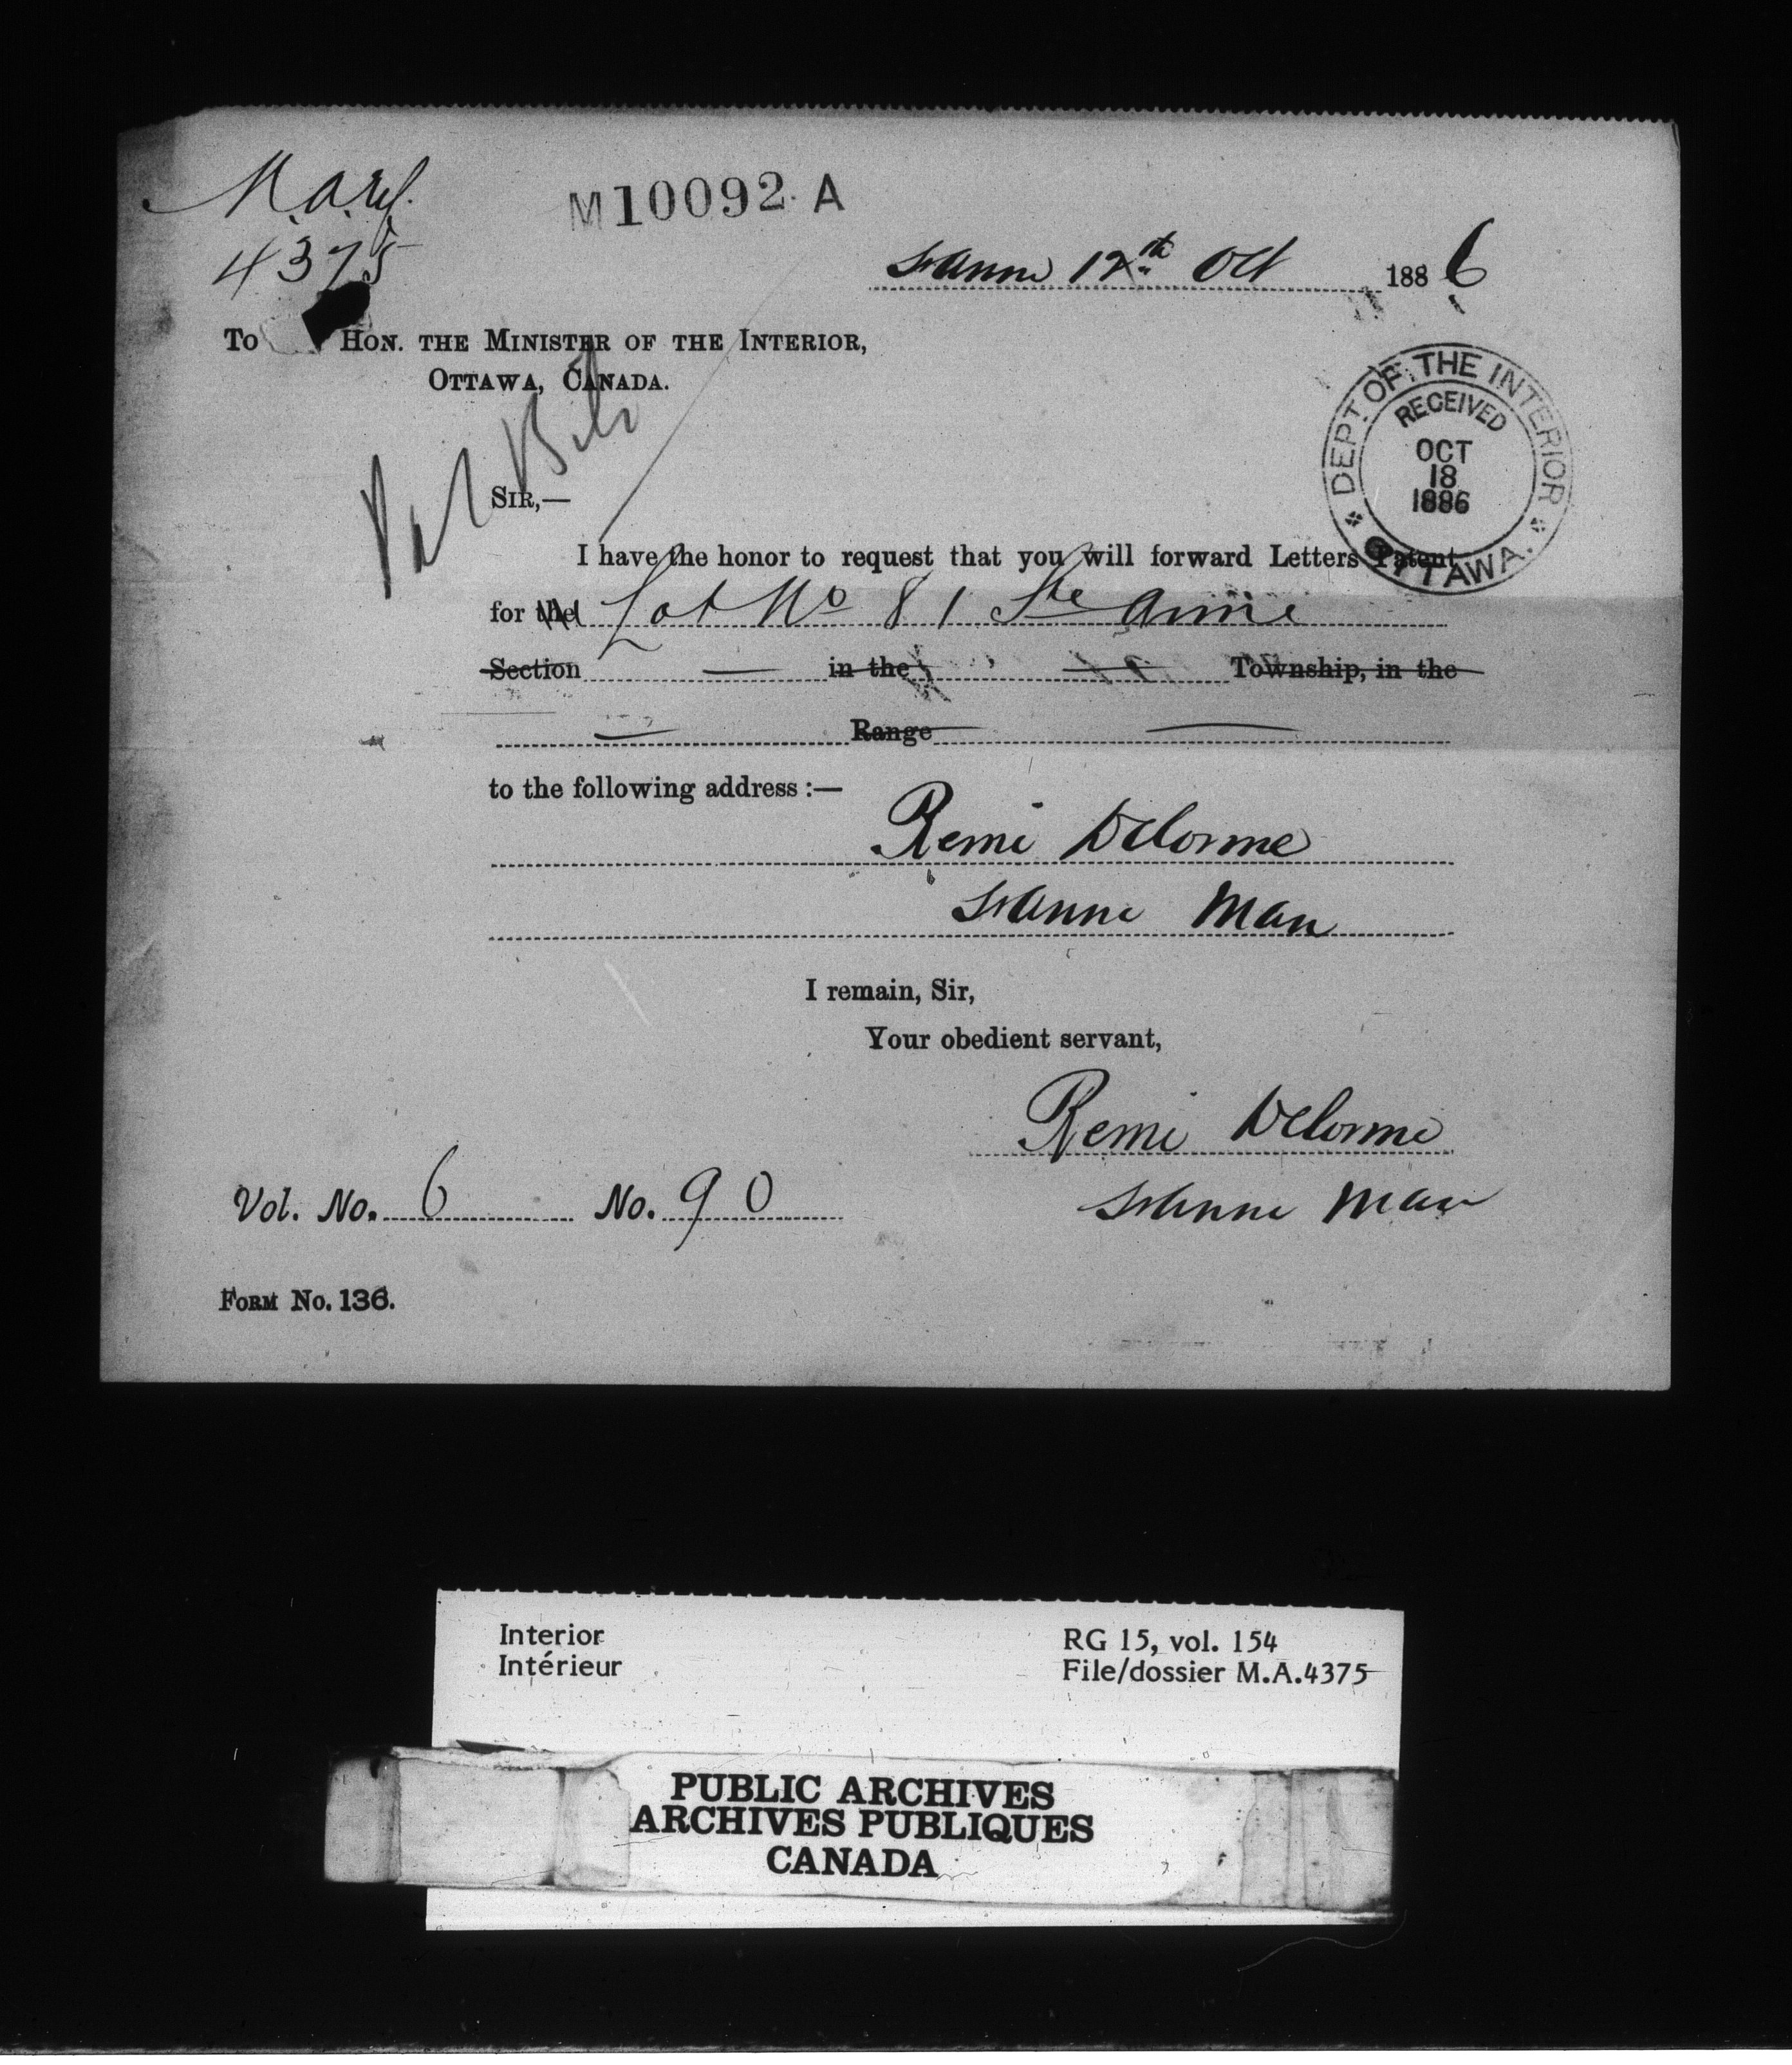 M.A. ref.
4375
M10092 A
St Anne 12th Oct 1886
To Hon. the Minister of the Interior,
Ottawa, Canada.
DEPT OF THE INTERIOR
RECEIVED
OCT
18
1886
OTTAWA.
Sir,—
I have the honor to request that you will forward Letters Patent
for the Lot No 81 Ste Anne
Section in the Township, in the
Range
to the following address :—
Remi Delorme
St Anne Man
I remain, Sir,
Your obedient servant,
Remi Delorme
St Anne Man
Vol. No. 6 No. 90
Form No. 136.
Interior
Intérieur
RG 15, vol. 154
File/dossier M.A.4375
PUBLIC ARCHIVES
ARCHIVES PUBLIQUES
CANADA